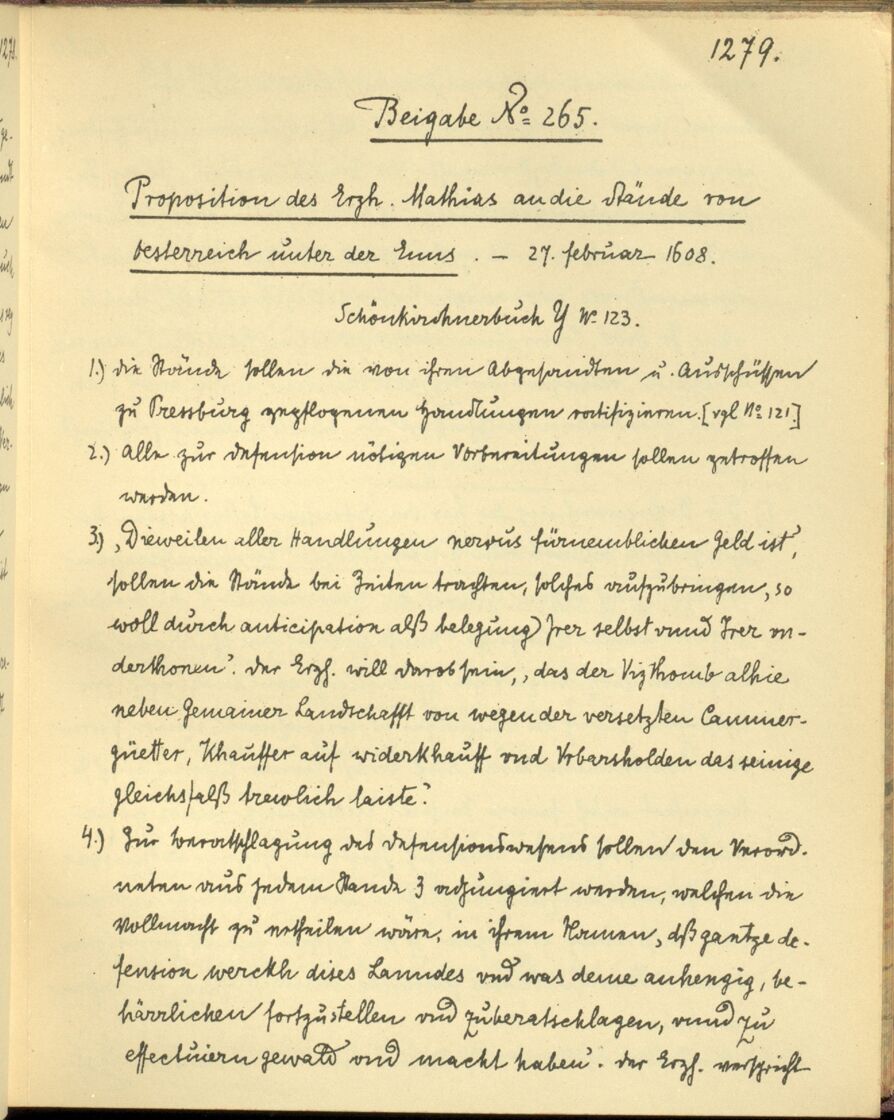 1279.
Beigabe No 265.
Proposition des Erzh. Mathias an die Stände von
Oesterreich unter der Enns. – 27. Februar 1608.
Schönkirchnerbuch Y No 123.
1.) Die Stände sollen die von ihren Abgesandten u. Ausschüssen
zu Pressburg gepflogenen Handlungen ratifizieren. [vgl No 121]
2.) Alle zur Defension nötigen Vorbereitungen sollen getroffen
werden.
3.) „Dieweilen aller Handlungen nervus fürnemblichen Geld ist“,
sollen die Stände bei Zeiten trachten, solches aufzubringen, „so
woll durch anticipation alß belegung Irer selbst vnnd Irer vn-
derthonen“. Der Erzh. will darob sein, „das der Vizthomb alhie
neben Gemainer Landschafft von wegen der versetzten Cammer-
güetter, Khauffer auf widerkhauff vnd Vrbarsholden das seinige
gleichsfalß trewlich laiste“.
4.) Zur Beratschlagung des Defensionswesens sollen den Verord-
neten aus jedem Stande 3 adjungiert werden, welchen die
Vollmacht zu ertheilen wäre, in ihrem Namen „dß gantze de-
fension werckh dises Lanndes vnd was deme anhengig, be-
härrlichen fortzustellen vnd zuberatschlagen, vnnd zu
effectuiern gewald vnd macht haben“. Der Erzh. verspricht